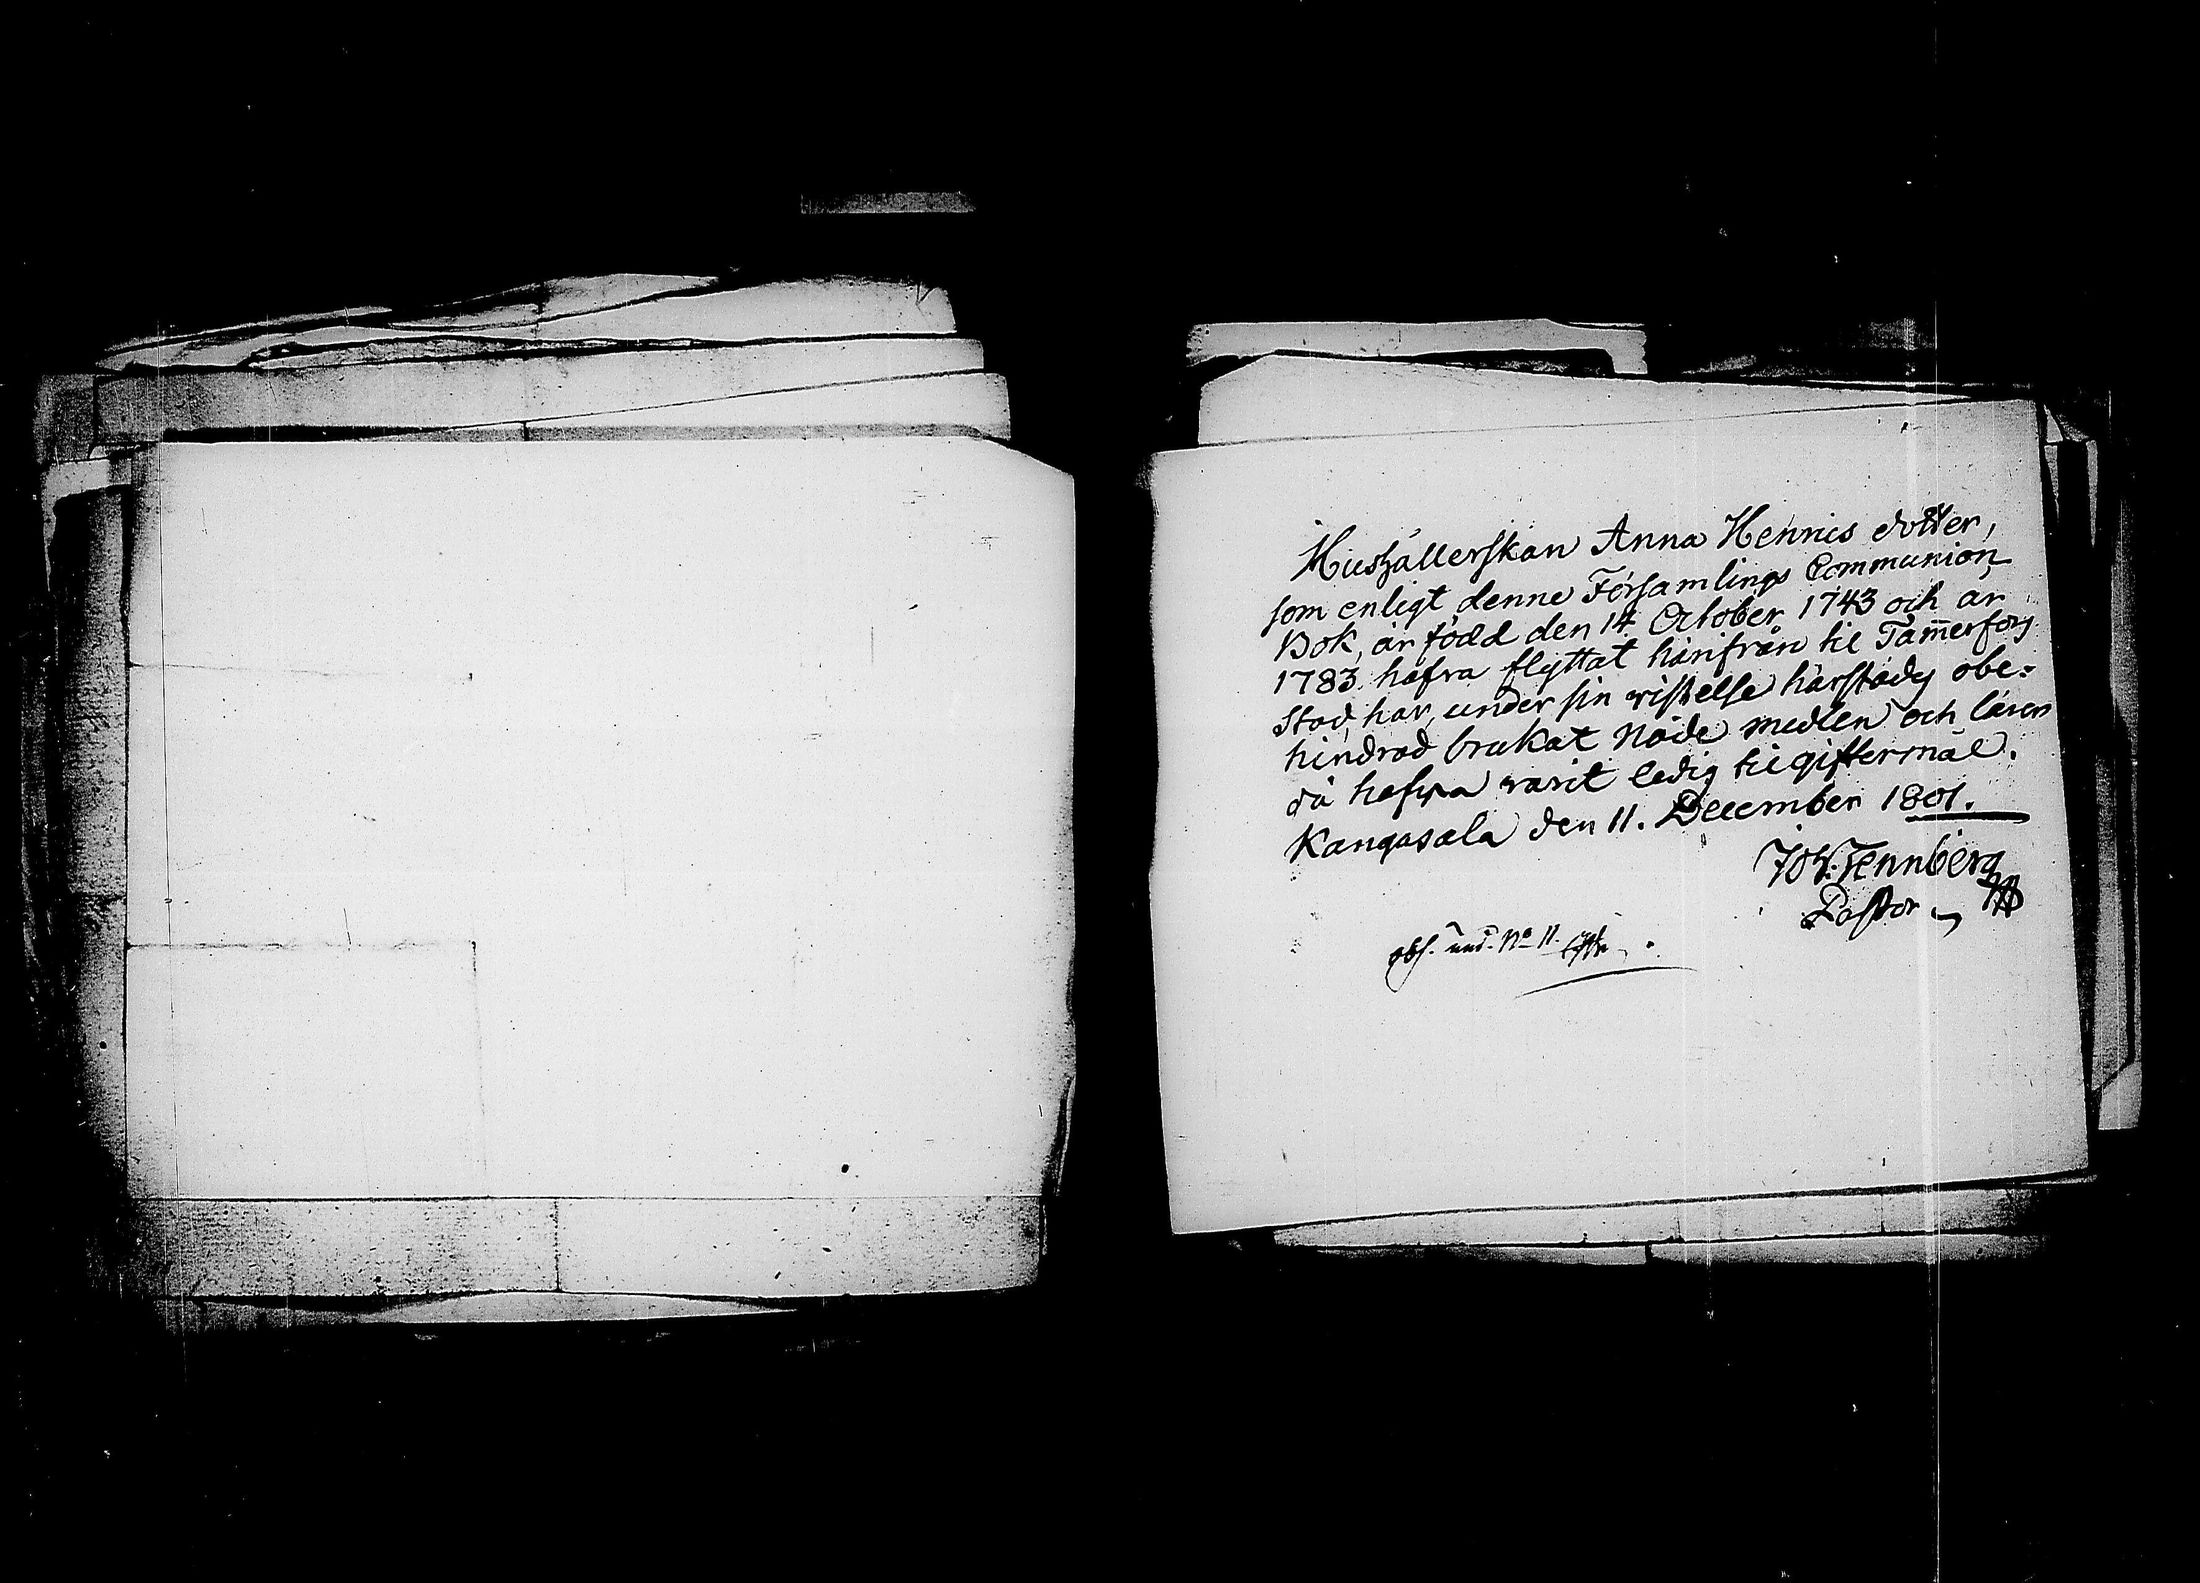 Hushållerskan Anna Henrics dotter,
som enligt denne Församlings Communion
Bok, är född den 14 October 1743 och är
1783 hafva flyttat härifrån til Tam̄erfors
Stad, har, under sin vistelse härstädes obe=
hindrad brukat Nåde medlen och lären
då hafva varit ledig til giftermål.
Kangasala den 11. December 1801.
Joh. Tennberg
Pastor
obs. und. No 11.